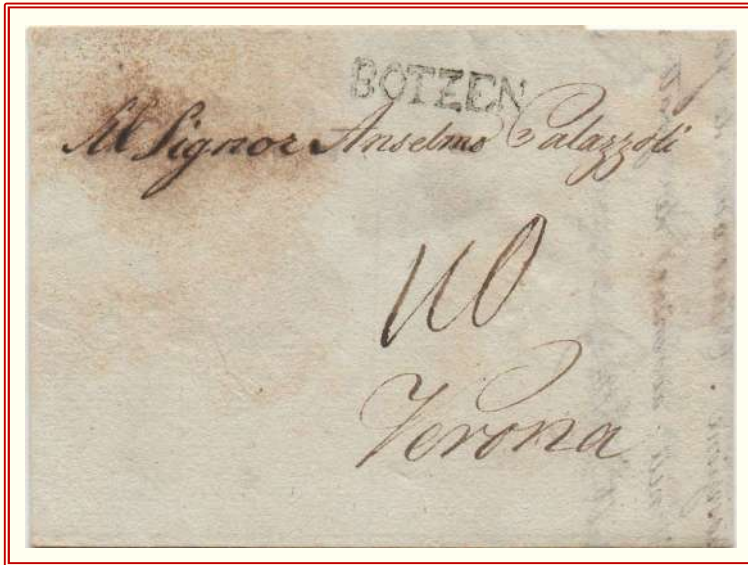 BOTZEN
Al Signor Anselmo Palazzoli
110
Verona